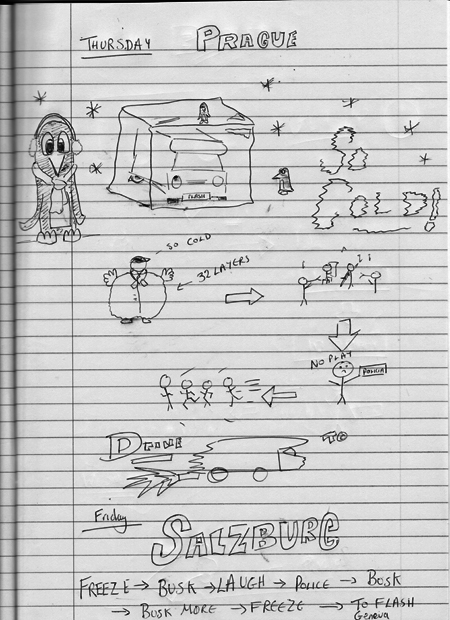 THURSDAY PRAGUE
SO COLD!
SO COLD
32 LAYERS
NO PLAY
POLICIA
DRIVE TO
Friday
SALZBURG
FREEZE → BUSK → LAUGH → POLICE → BUSK
→ BUSK MORE → FREEZE → TO FLASH
Geneva